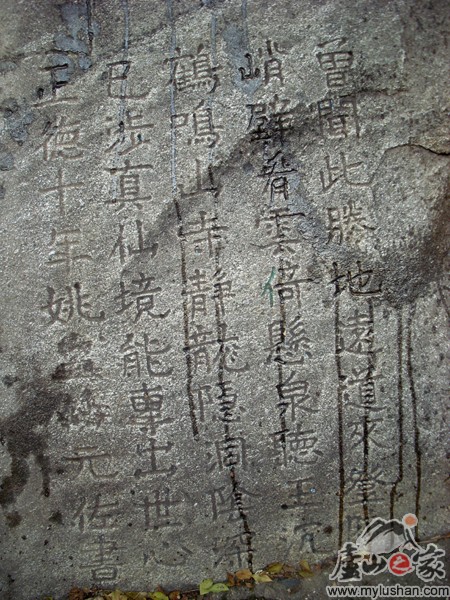 曾聞此勝地遠道來登
峭壁看雲倚懸泉聽玉
鶴鳴山寺靜龍隱洞陰深
已涉真仙境能專出世心
正德十年姚元佐書
廬山之家
www.mylushan.com